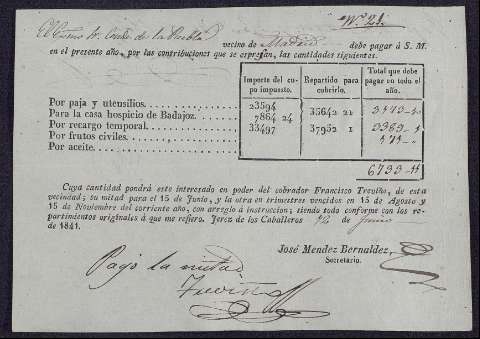 Nº 21.
El Exmo Sr. Conde de la Puebla vecino de Madrid debe pagar á S. M.
en el presente año, por las contribuciones que se espresan, las cantidades siguientes.
Importe del cupo impuesto. Repartido para cubrirlo. Total que debe pagar en todo el año.
Por paja y utensilios. 23594 35642 21
Para la casa hospicio de Badajoz. 7864 24
Por recargo temporal. 33497 37952 1
Por frutos civiles.
Por aceite.
6733
Cuya cantidad pondrá este interesado en poder del cobrador Francisco Treviño, de esta
vecindad; su mitad para el 15 de Junio, y la otra en trimestres vencidos en 15 de Agosto y
15 de Noviembre del corriente año, con arreglo á instruccion; siendo todo conforme con los re-
partimientos originales á que me refiero. Jerez de los Caballeros 12 de Junio
de 1841.
José Mendez Bernaldez,
Secretario.
Pagó la mitad
Treviño